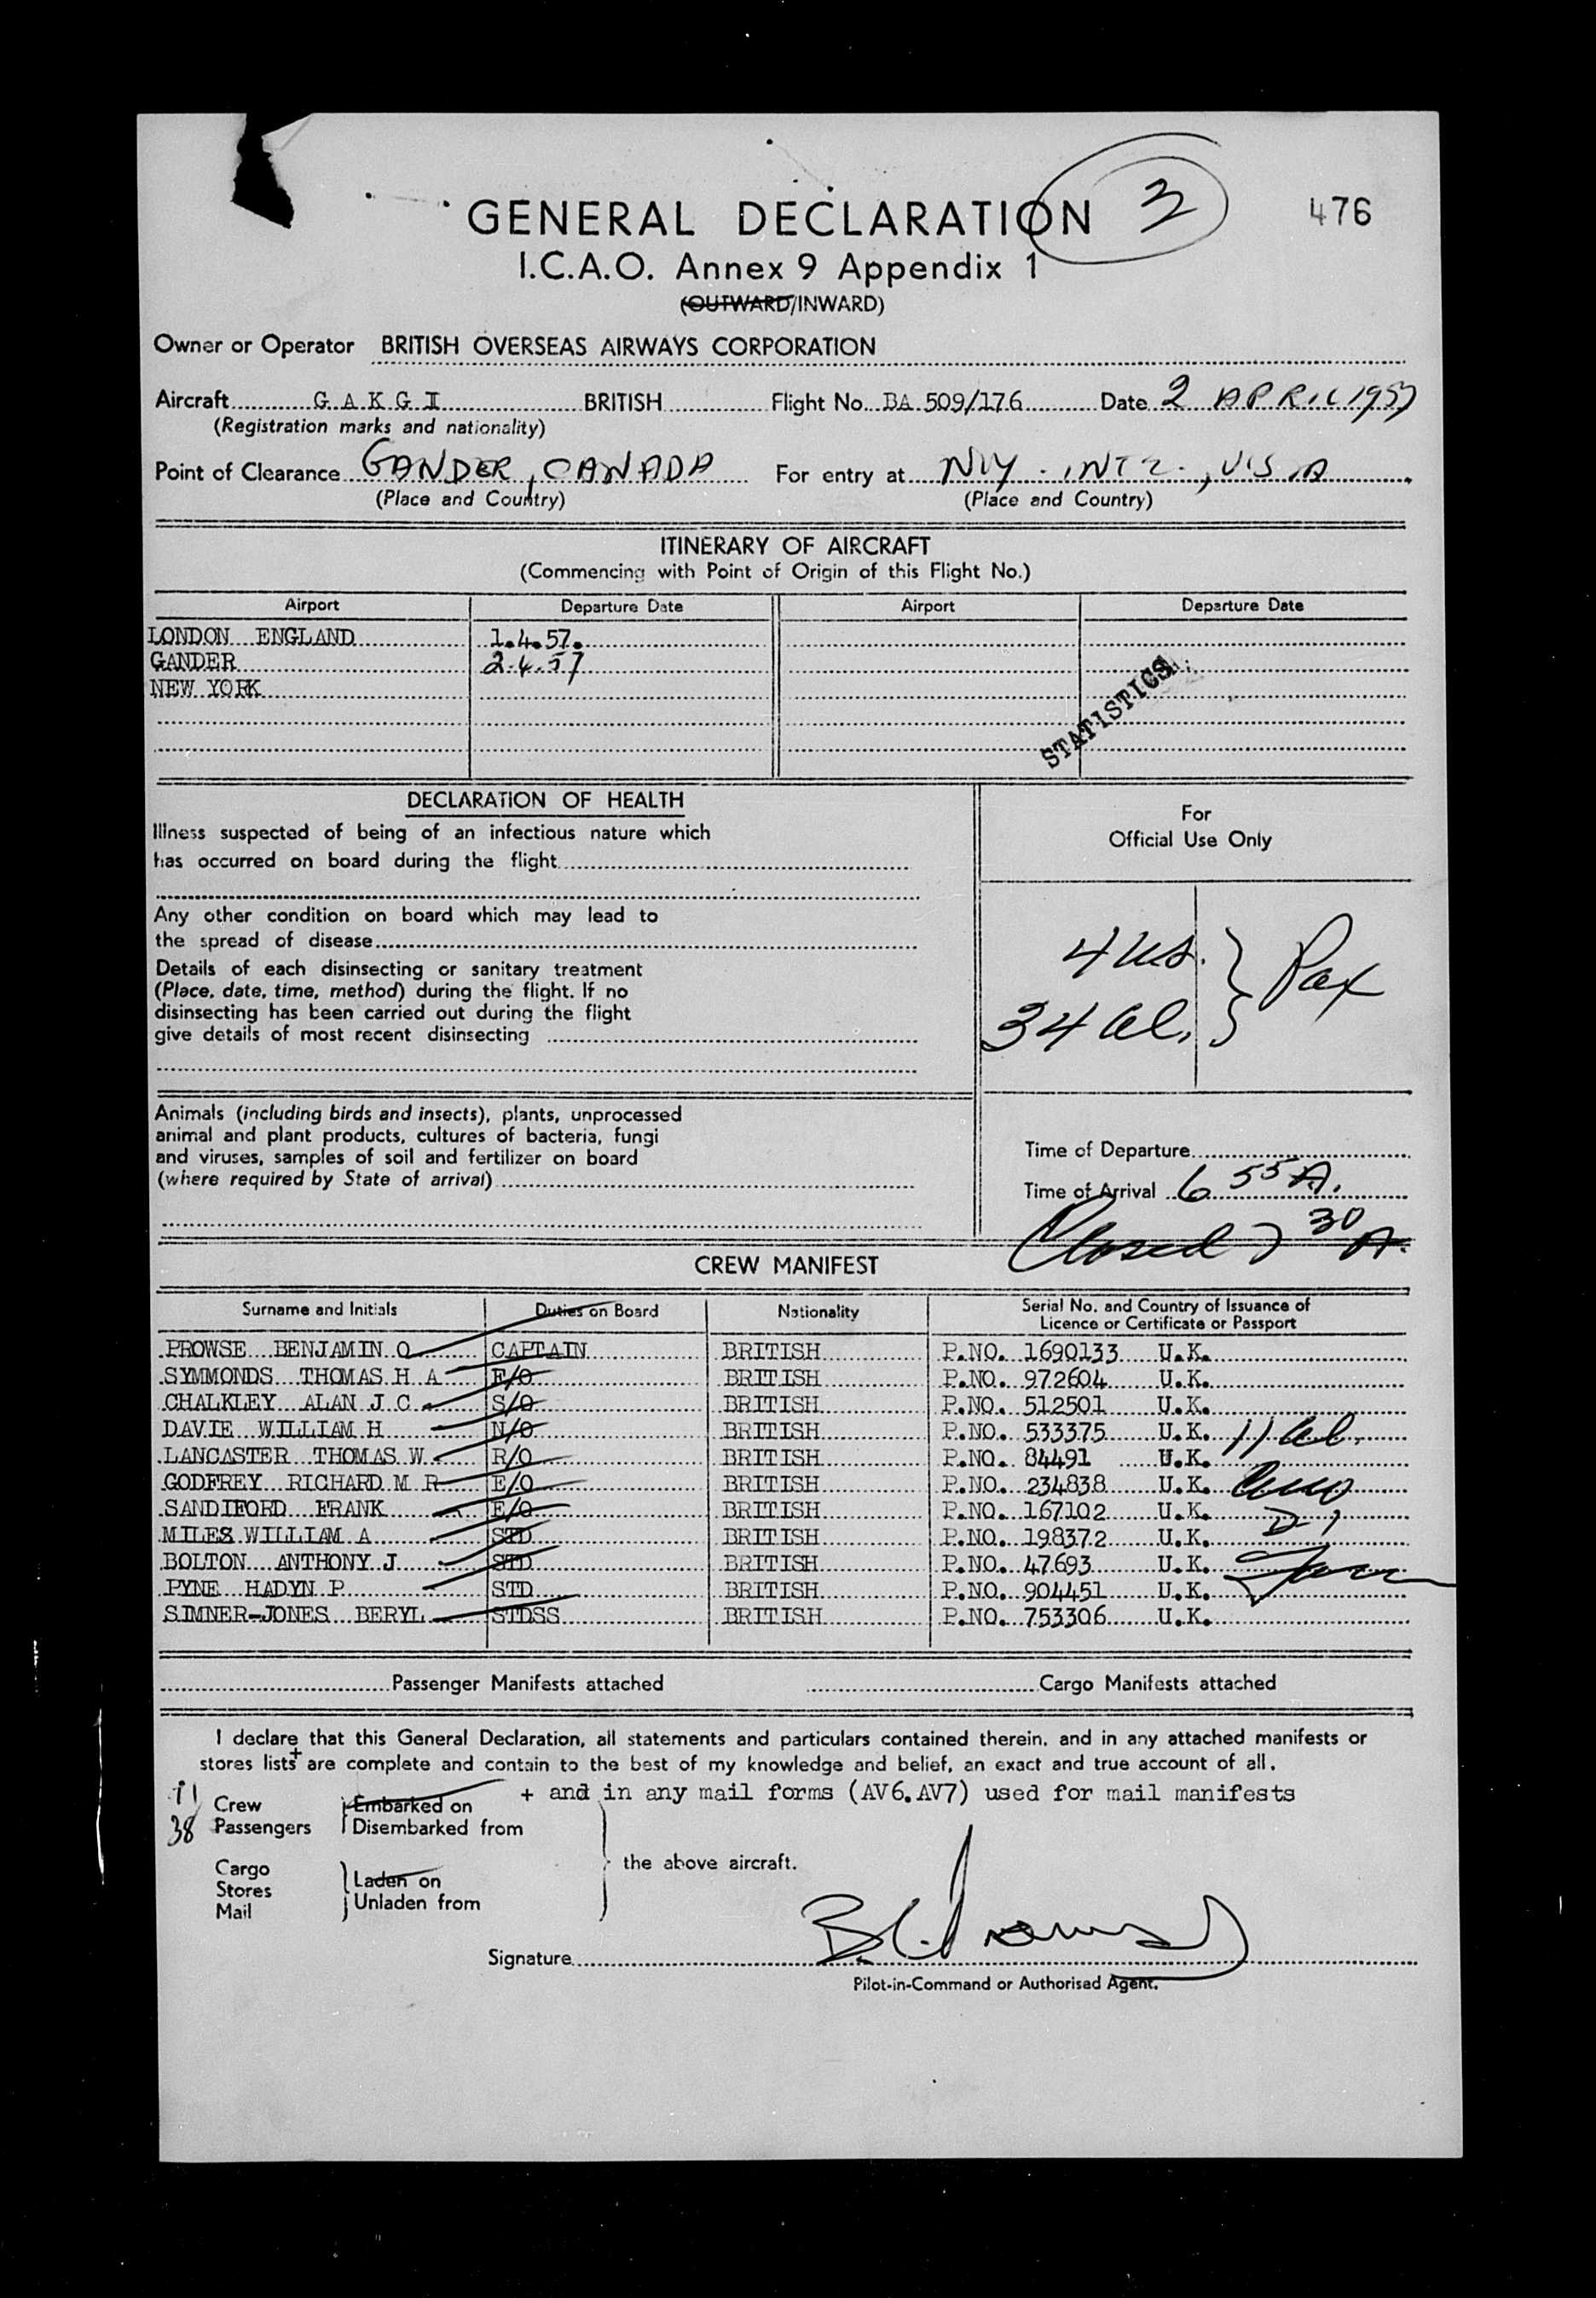 3
476
GENERAL DECLARATION
I.C.A.O. Annex 9 Appendix 1
(OUTWARD/INWARD)
Owner or Operator BRITISH OVERSEAS AIRWAYS CORPORATION
Aircraft G A K G I BRITISH Flight No. BA 509/176 Date 2 APRIL 1957
(Registration marks and nationality)
Point of Clearance GANDER, CANADA For entry at NY. INT'L., U.S.A
(Place and Country) (Place and Country)
ITINERARY OF AIRCRAFT
(Commencing with Point of Origin of this Flight No.)
Airport Departure Date Airport Departure Date
LONDON ENGLAND 1.4.57.
GANDER 2.4.57
NEW YORK
STATISTICS
DECLARATION OF HEALTH
Illness suspected of being of an infectious nature which
has occurred on board during the flight
Any other condition on board which may lead to
the spread of disease
Details of each disinsecting or sanitary treatment
(Place, date, time, method) during the flight. If no
disinsecting has been carried out during the flight
give details of most recent disinsecting
For
Official Use Only
4 us. } Pax
34 al.
Animals (including birds and insects), plants, unprocessed
animal and plant products, cultures of bacteria, fungi
and viruses, samples of soil and fertilizer on board
(where required by State of arrival)
Time of Departure
Time of Arrival 6 55 A.
Closed 7 30 A.
CREW MANIFEST
Surname and Initials Duties on Board Nationality Serial No. and Country of Issuance of
Licence or Certificate or Passport
PROWSE BENJAMIN O CAPTAIN BRITISH P.NO. 1690133 U.K.
SYMMONDS THOMAS H A F/O BRITISH P.NO. 972604 U.K.
CHALKLEY ALAN J C S/O BRITISH P.NO. 512501 U.K.
DAVIE WILLIAM H N/O BRITISH P.NO. 533375 U.K. 11 al.
LANCASTER THOMAS W R/O BRITISH P.NO. 84491 U.K.
GODFREY RICHARD M R E/O BRITISH P.NO. 234838 U.K.
SANDIFORD FRANK E/O BRITISH P.NO. 167102 U.K.
MILES WILLIAM A STD BRITISH P.NO. 198372 U.K.
BOLTON ANTHONY J STD BRITISH P.NO. 47693 U.K.
PYNE HADYN P STD BRITISH P.NO. 904451 U.K.
SIMNER-JONES BERYL STDSS BRITISH P.NO. 753306 U.K.
Passenger Manifests attached Cargo Manifests attached
I declare that this General Declaration, all statements and particulars contained therein, and in any attached manifests or
stores lists + are complete and contain to the best of my knowledge and belief, an exact and true account of all.
+ and in any mail forms (AV6.AV7) used for mail manifests
11 Crew Embarked on
38 Passengers Disembarked from
the above aircraft.
Cargo Laden on
Stores
Mail Unladen from
Signature
Pilot-in-Command or Authorised Agent.